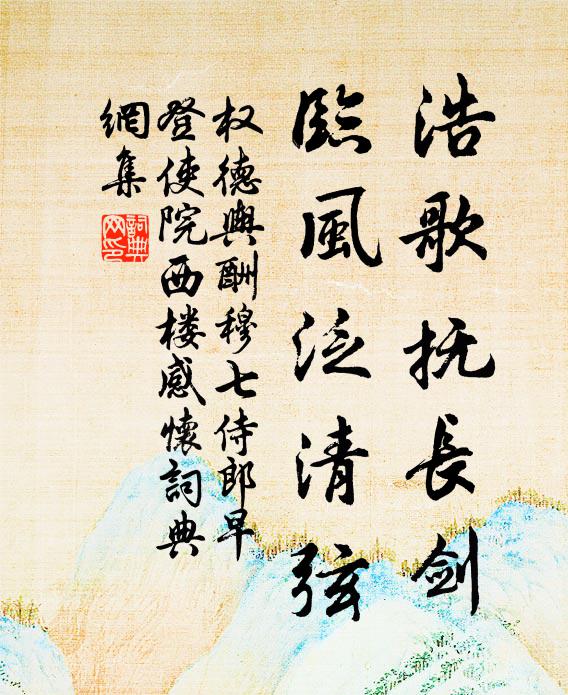 浩歌抚長劍
臨風泛清弦
权德輿酬穆七侍郎早
登使院西楼感懷詞典
網集
詞典
网印